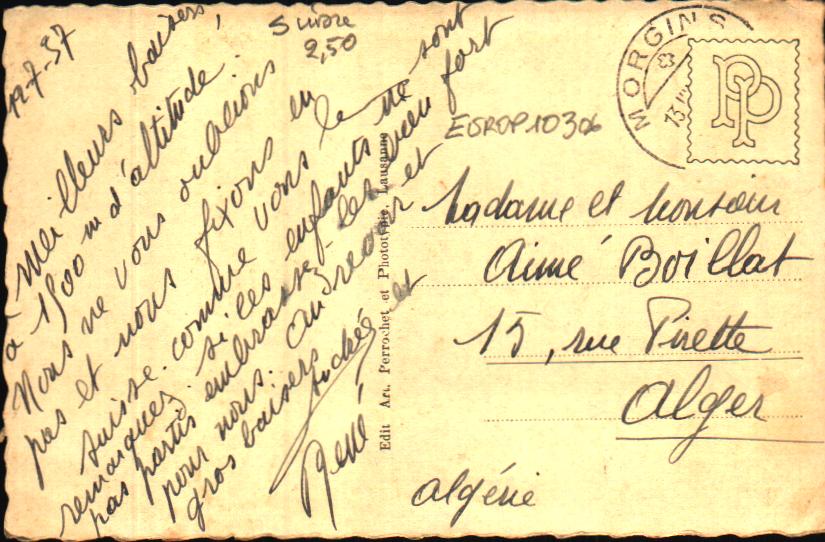 12-7-37
Meilleurs baisers,
à 1500 m d'altitude.
Nous ne vous oublions
pas et nous fixons en
suisse. comme vous le
remarquez. si les enfants ne sont
pas partis embrassez-les bien fort
pour nous. au revoir et
gros baisers
et
René
Suisse
2,50
EUROP10306
MORGINS
13
PP
Edit Art. Perrochet et Phototypie, Lausanne
Madame et Monsieur
Aimé Boillat
15, rue Pirette
Alger
algérie